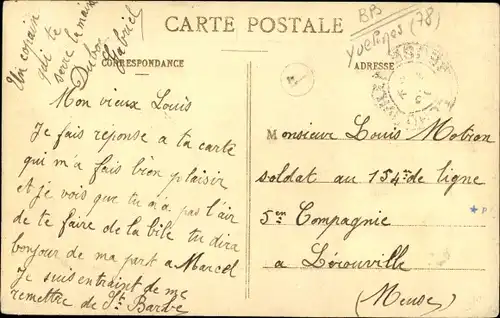 CARTE POSTALE
CORRESPONDANCE
ADRESSE
BPS
Yvelines (78)
Un copain
qui te
serre la main
Dubois Gabriel
Mon vieux Louis
Je fais reponse a ta carte
qui m'a fais bien plaisir
et je vois que tu n'a pas l'air
de te faire de la bile tu dira
bonjour de ma part a Marcel
Je suis entraint de me
remettre de St. Barbe
Monsieur Louis Motron
soldat au 154e de ligne
5en Compagnie
a Lérouville
(Meuse)